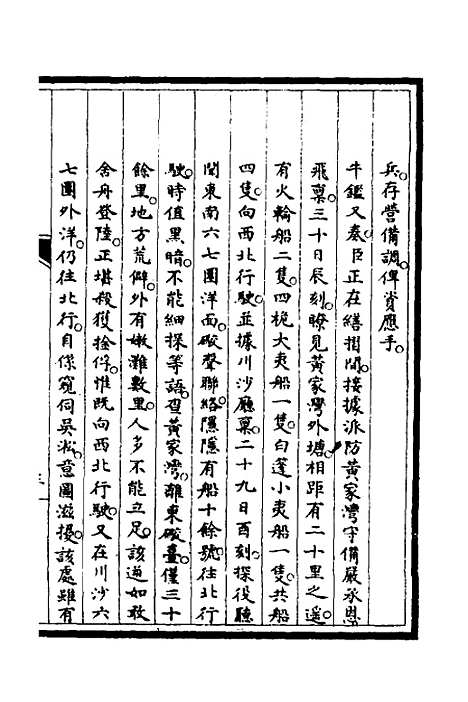 兵。存營備調。俾資應手。
牛鑑又奏。臣正在繕摺間。接據派防黃家灣守備嚴承恩
飛稟。三十日辰刻。瞭見黃家灣外塘。相距有二十里之遥。
有火輪船二隻。四桅大夷船一隻。白篷小夷船一隻。共船
四隻。向西北行駛。並據川沙廳稟。二十九日酉刻。探役聽
聞東南六七團洋面。礮聲聯絡。隱隱有船十餘號。往北行
駛。時值黑暗。不能細探等語。查黃家灣。離東礮臺。僅三十
餘里。地方荒僻。外有嫩灘數里。人多不能立足。該逆如敢
舍舟登陸。正堪殺獲擒俘。惟既向西北行駛。又在川沙六
七團外洋。仍往北行。自係窺伺吳淞。意圖滋擾。該處雖有